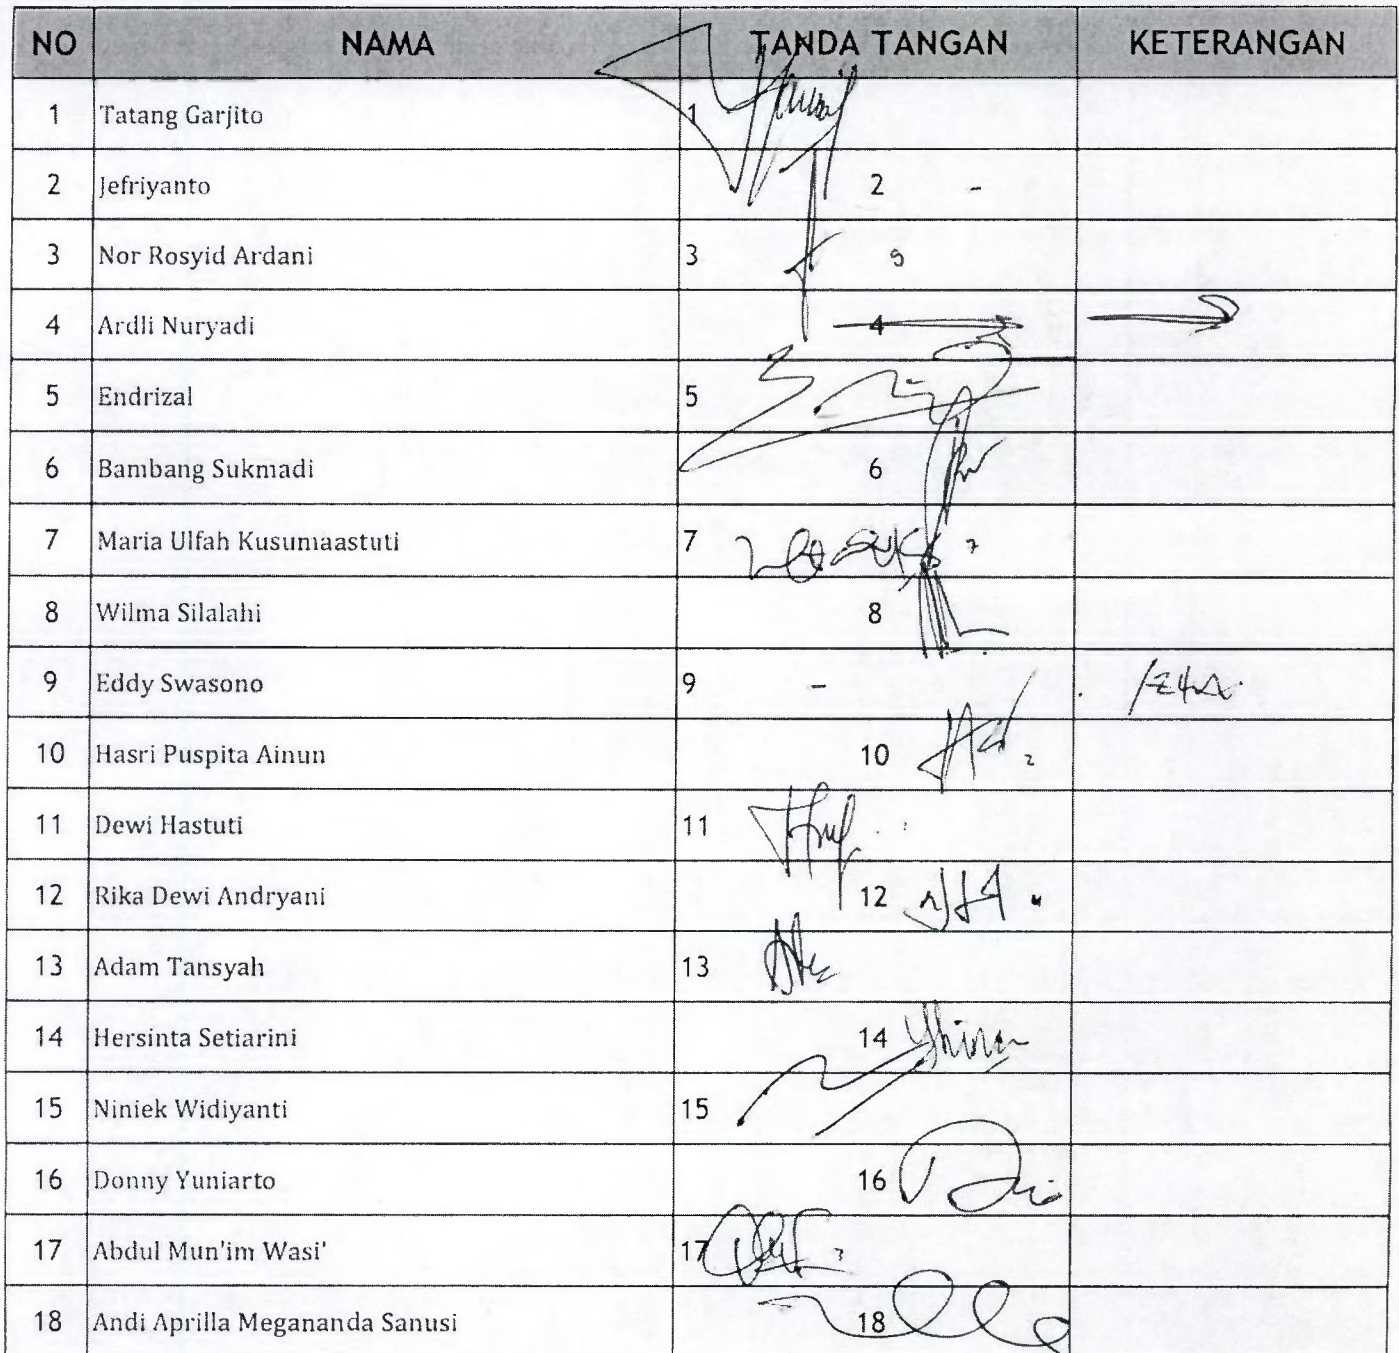 NO NAMA TANDA TANGAN KETERANGAN
1 Tatang Garjito 1
2 Jefriyanto 2 -
3 Nor Rosyid Ardani 3
4 Ardli Nuryadi 4
5 Endrizal 5
6 Bambang Sukmadi 6
7 Maria Ulfah Kusumaastuti 7
8 Wilma Silalahi 8
9 Eddy Swasono 9 -
10 Hasri Puspita Ainun 10
11 Dewi Hastuti 11
12 Rika Dewi Andryani 12
13 Adam Tansyah 13
14 Hersinta Setiarini 14
15 Niniek Widiyanti 15
16 Donny Yuniarto 16
17 Abdul Mun'im Wasi' 17
18 Andi Aprilla Megananda Sanusi 18